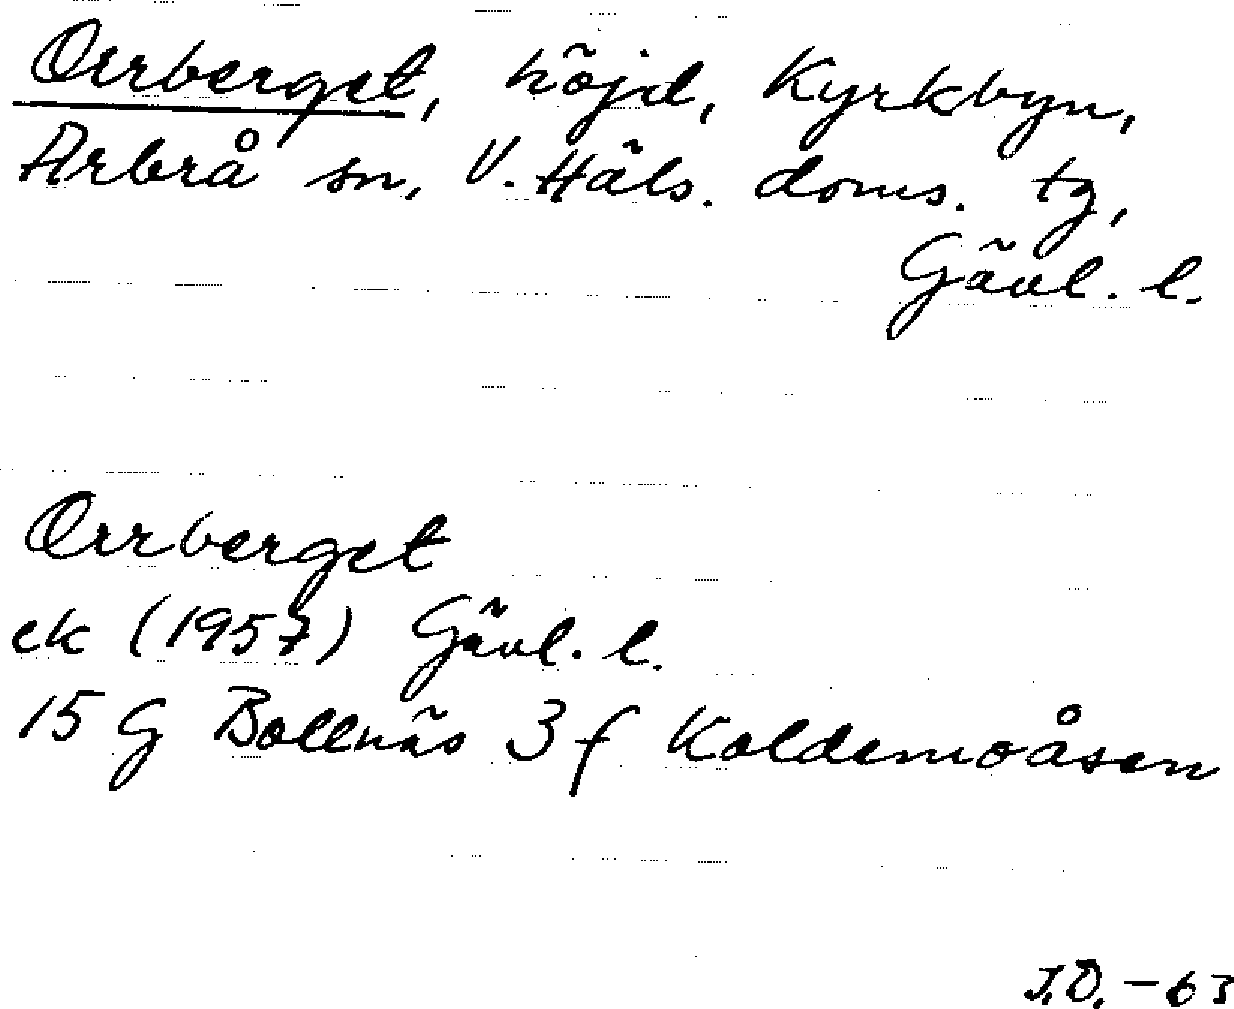 Orrberget, höjd, Kyrkbyn,
Arbrå sn, V. Häls. doms. tg,
Gävl. l.
Orrberget
ek (1957) Gävl. l.
15 G Bollnäs 3 f Koldemoåsen
J.Ö. - 63